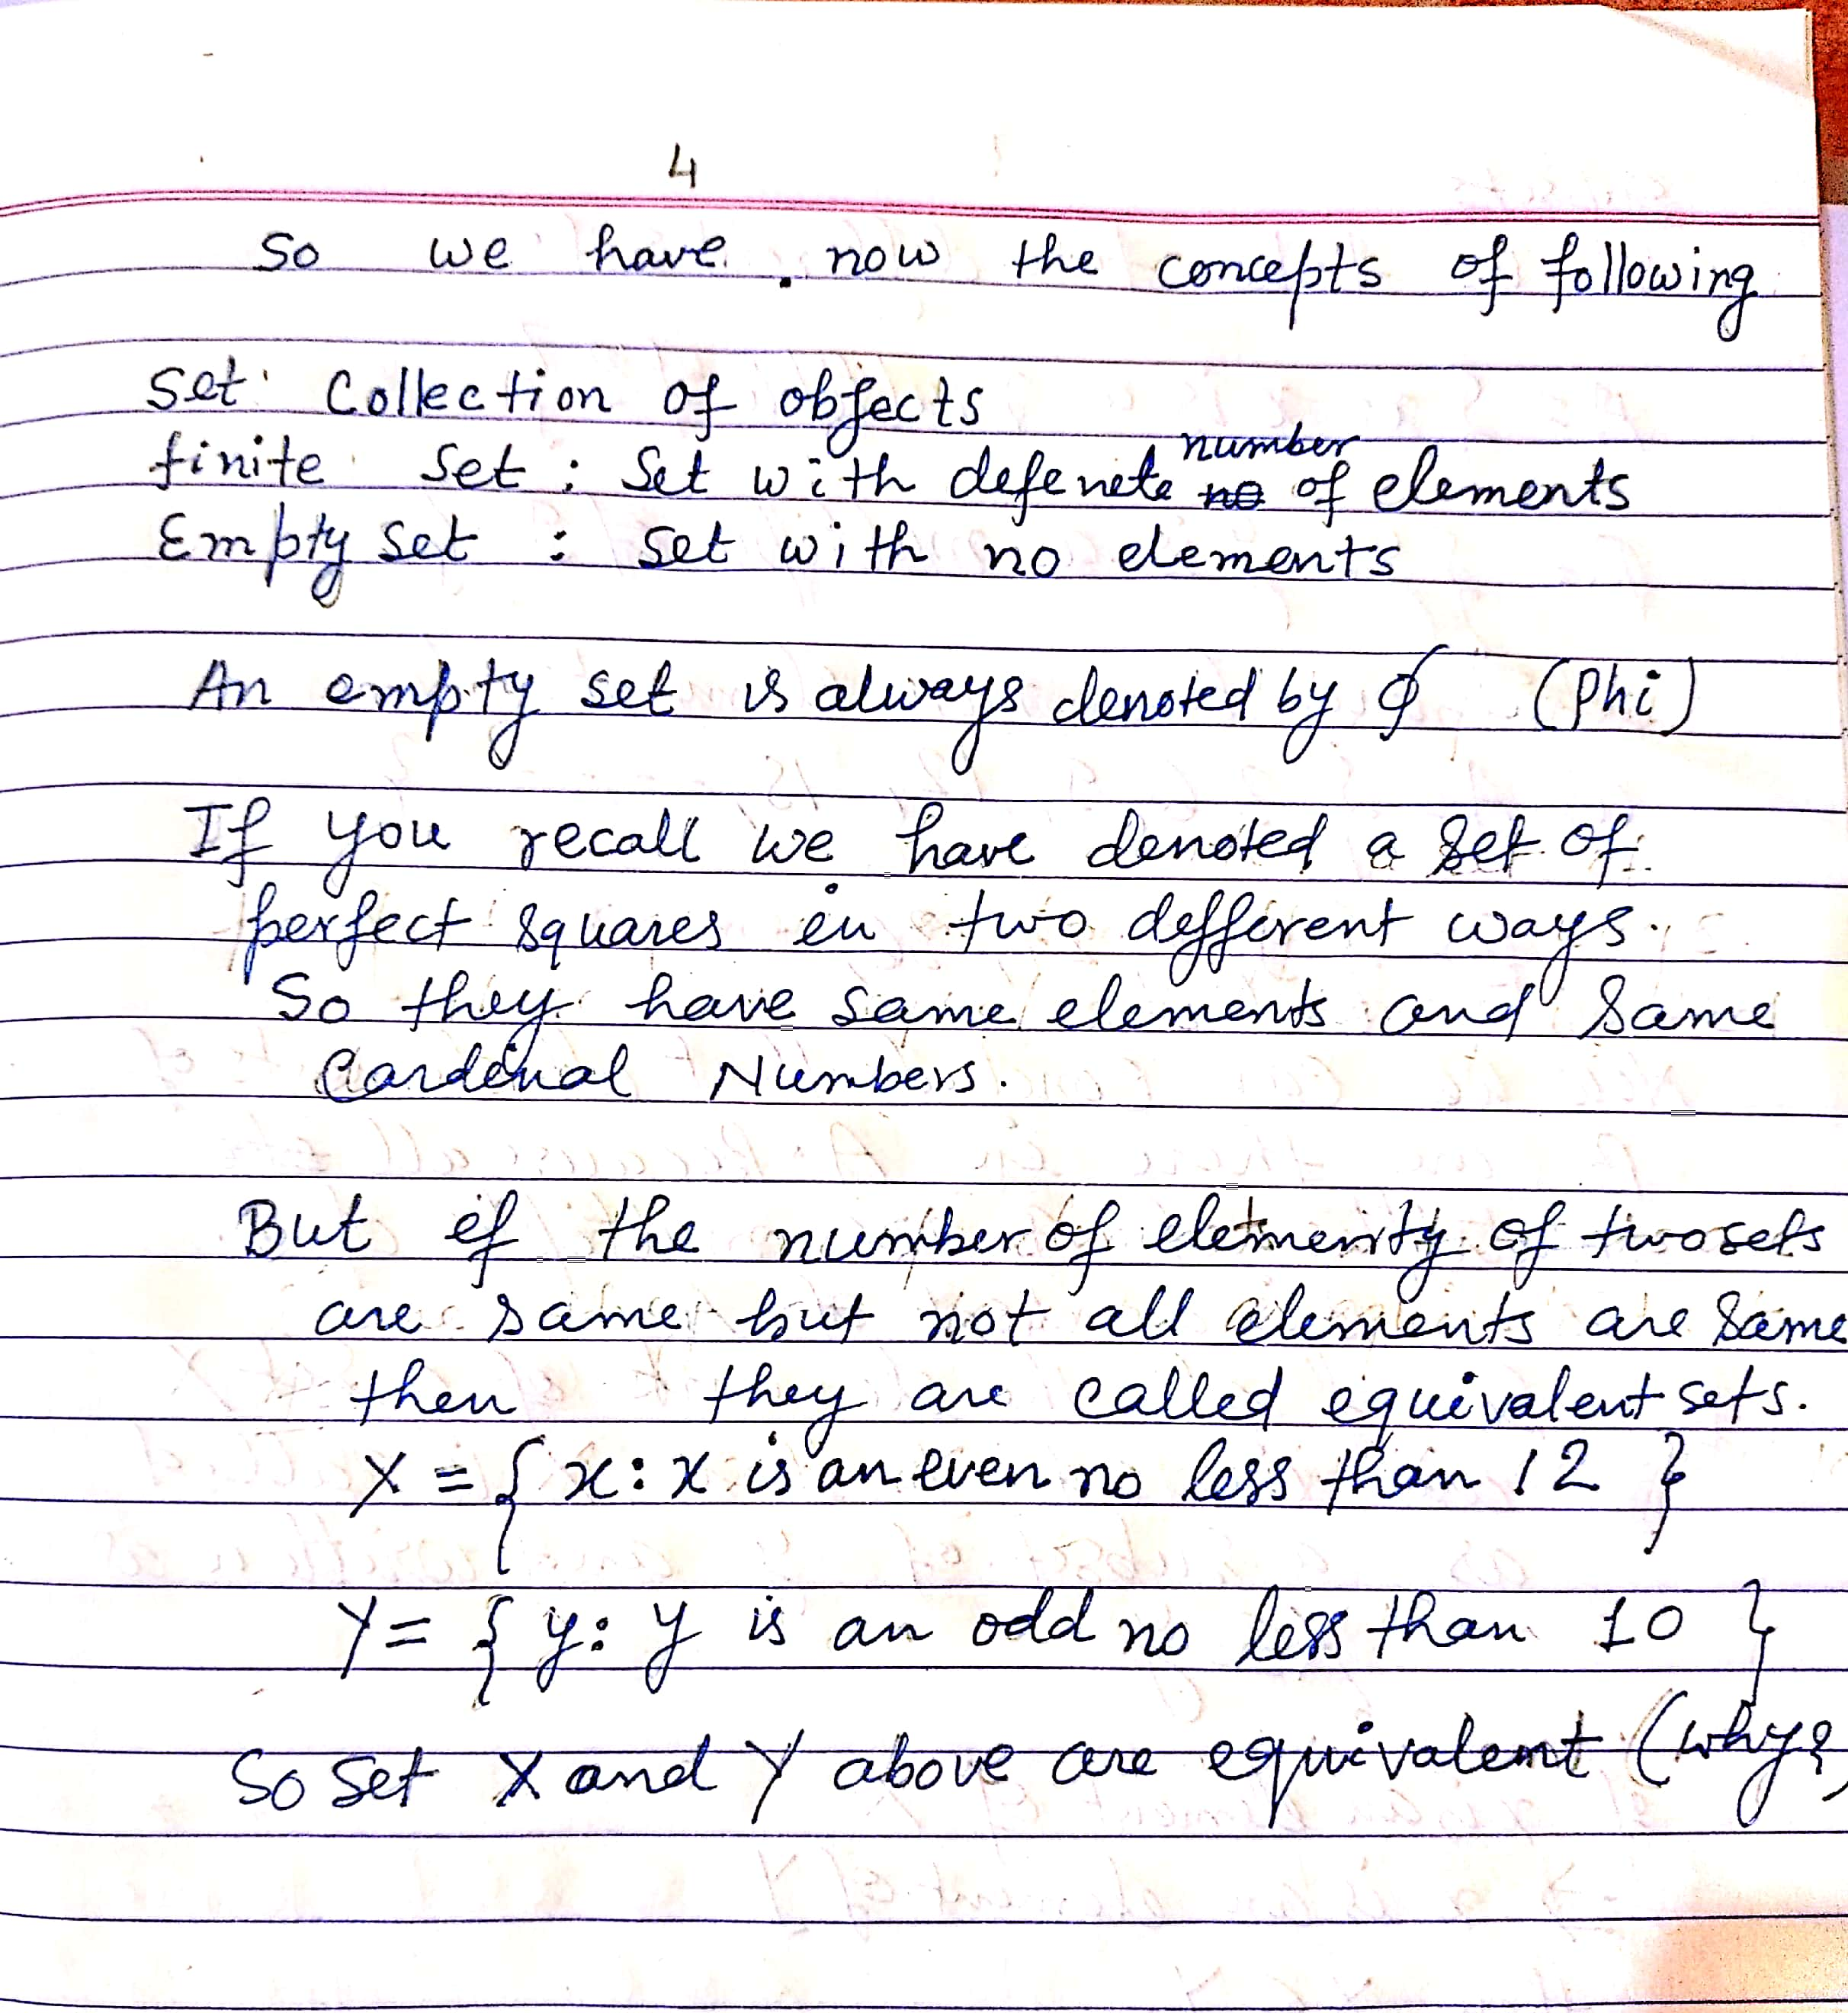 4
So we have now the concepts of following
Set: Collection of objects
finite Set : Set with defenete number of elements
Empty set : set with no elements
An empty set is always denoted by ϕ (Phi)
If you recall we have denoted a set of
perfect squares in two different ways.
So they have same elements and same
Cardinal Numbers.
But if the number of of two sets
are same but not all elements are same
then they are called equivalent sets.
X = { x : x is an even no less than 12 }
Y = { y : y is an odd no less than 10 }
So Set X and Y above are equivalent (why?)